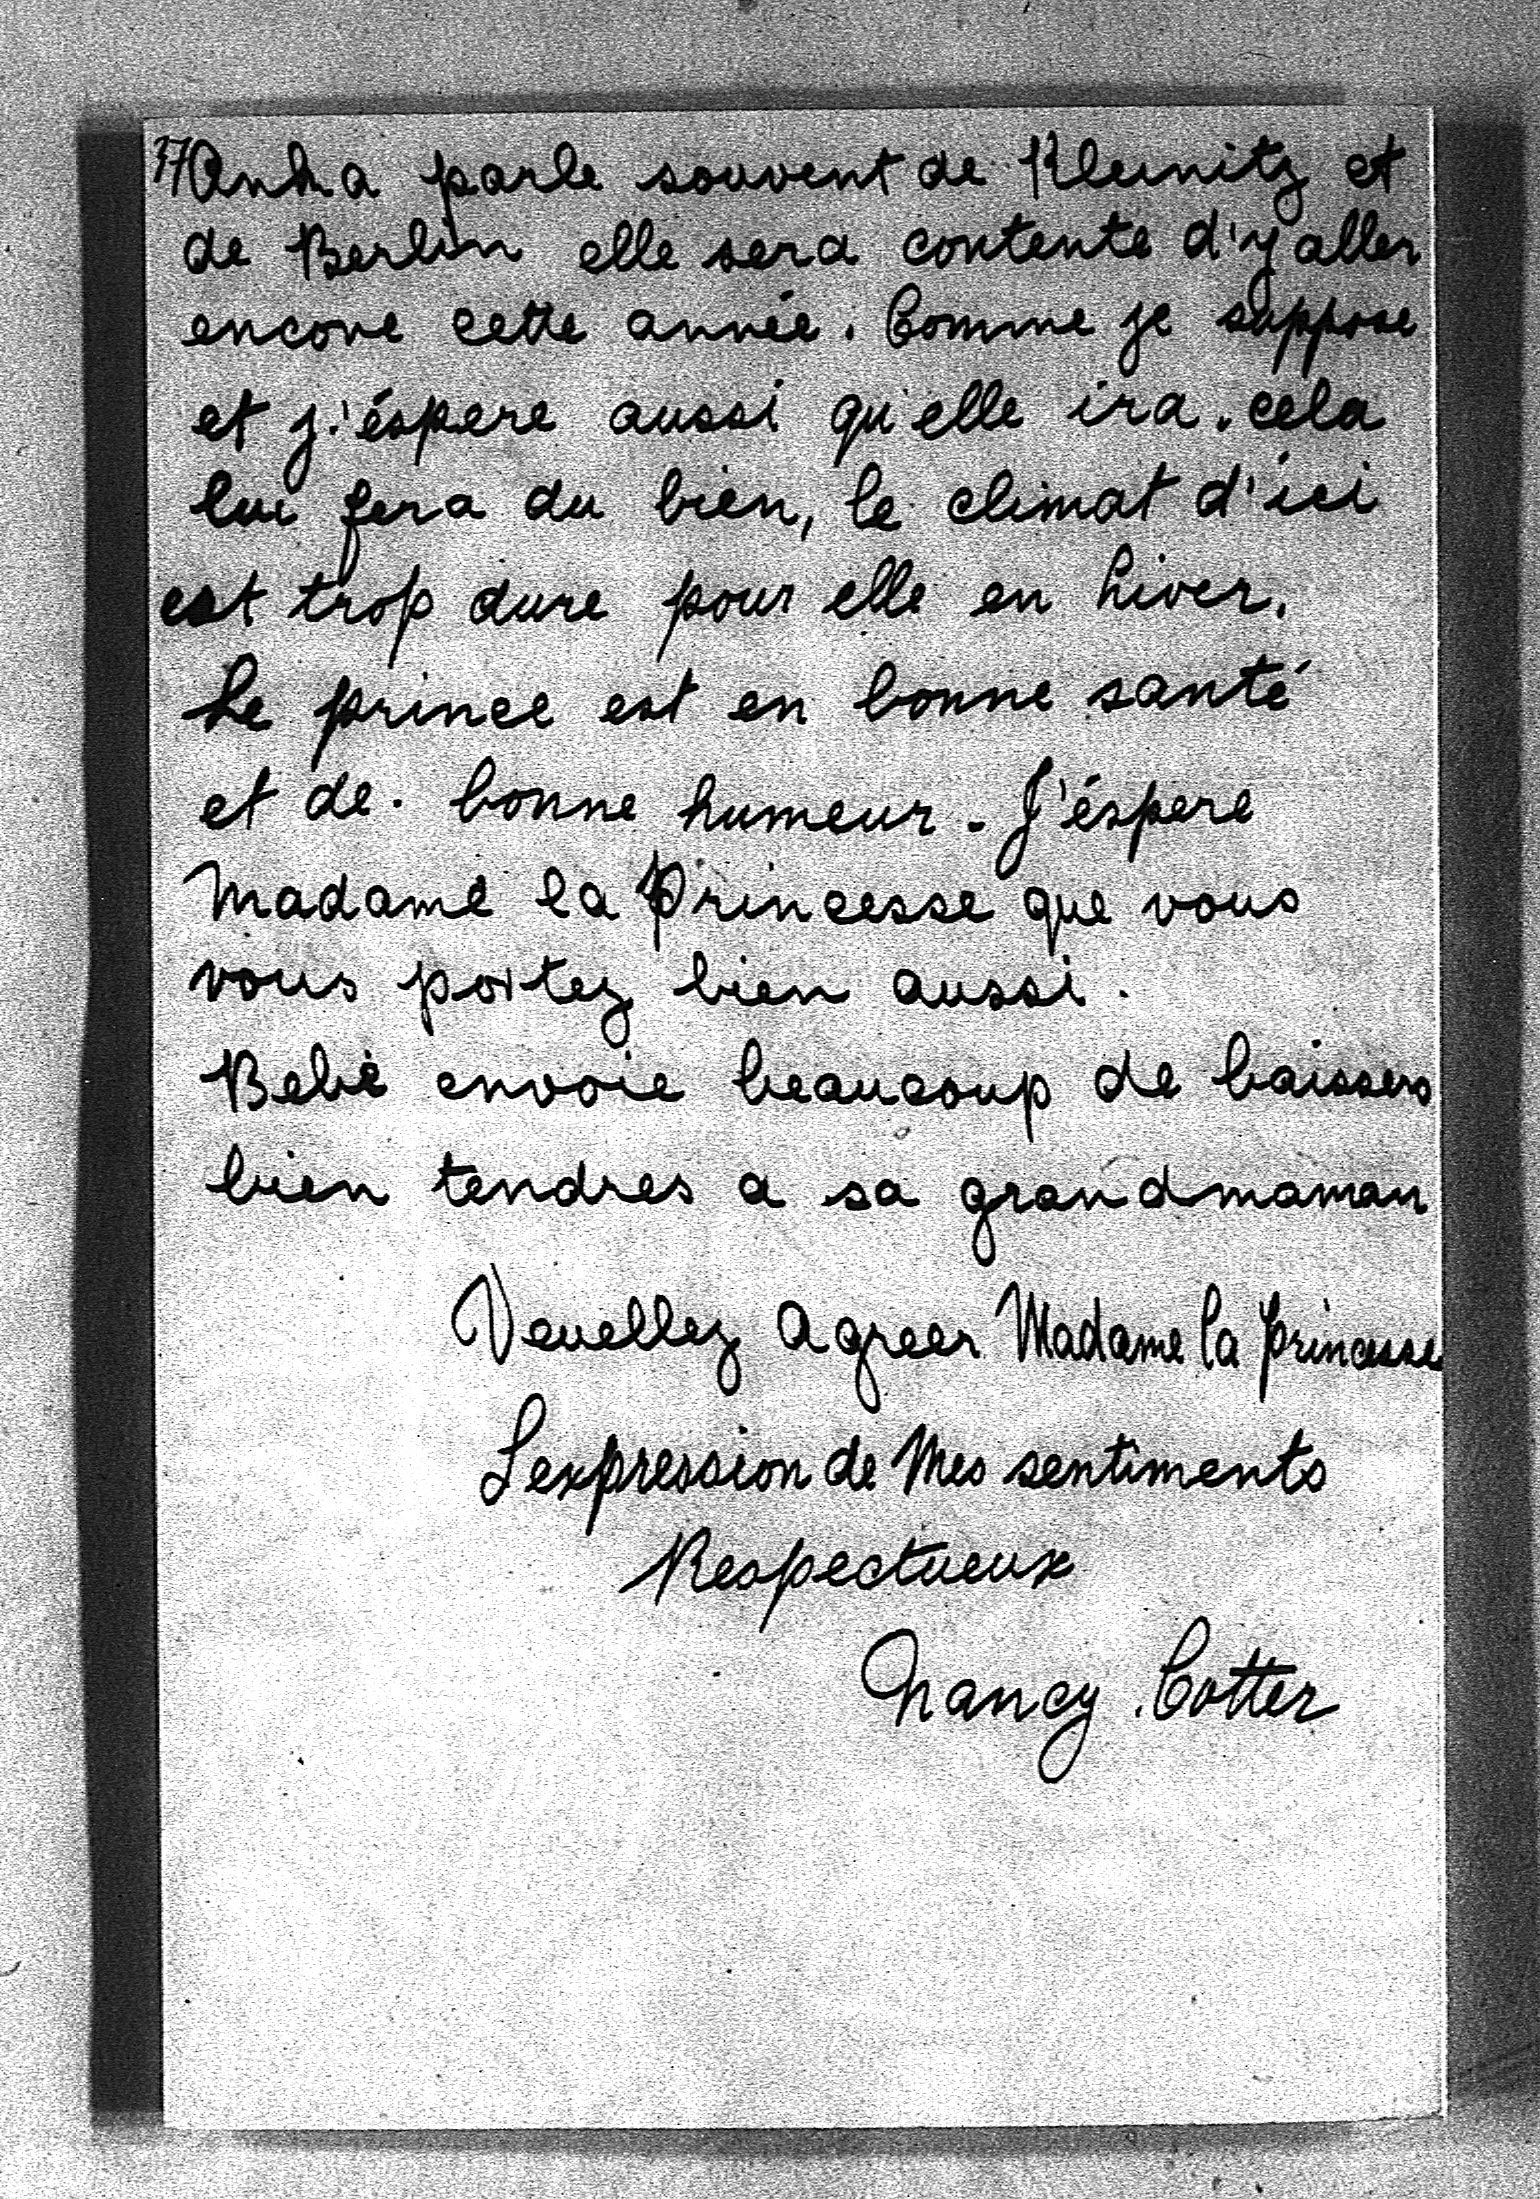 17 Anka parle souvent de Kleinitz et
de Berlin elle sera contente d'y aller
encore cette année. Comme je suppose
et j'éspere aussi qu'elle ira. cela
lui fera du bien, le climat d'ici
est trop dure pour elle en hiver.
Le prince est en bonne santé
et de. bonne humeur. J'éspere
Madame la Princesse que vous
vous portez bien aussi.
Bebé envoie beaucoup de baissers
bien tendres a sa grandmaman
Veuellez Agreer Madame la Princesse
L'expression de Mes sentiments
Respectueux
Nancy Cotter